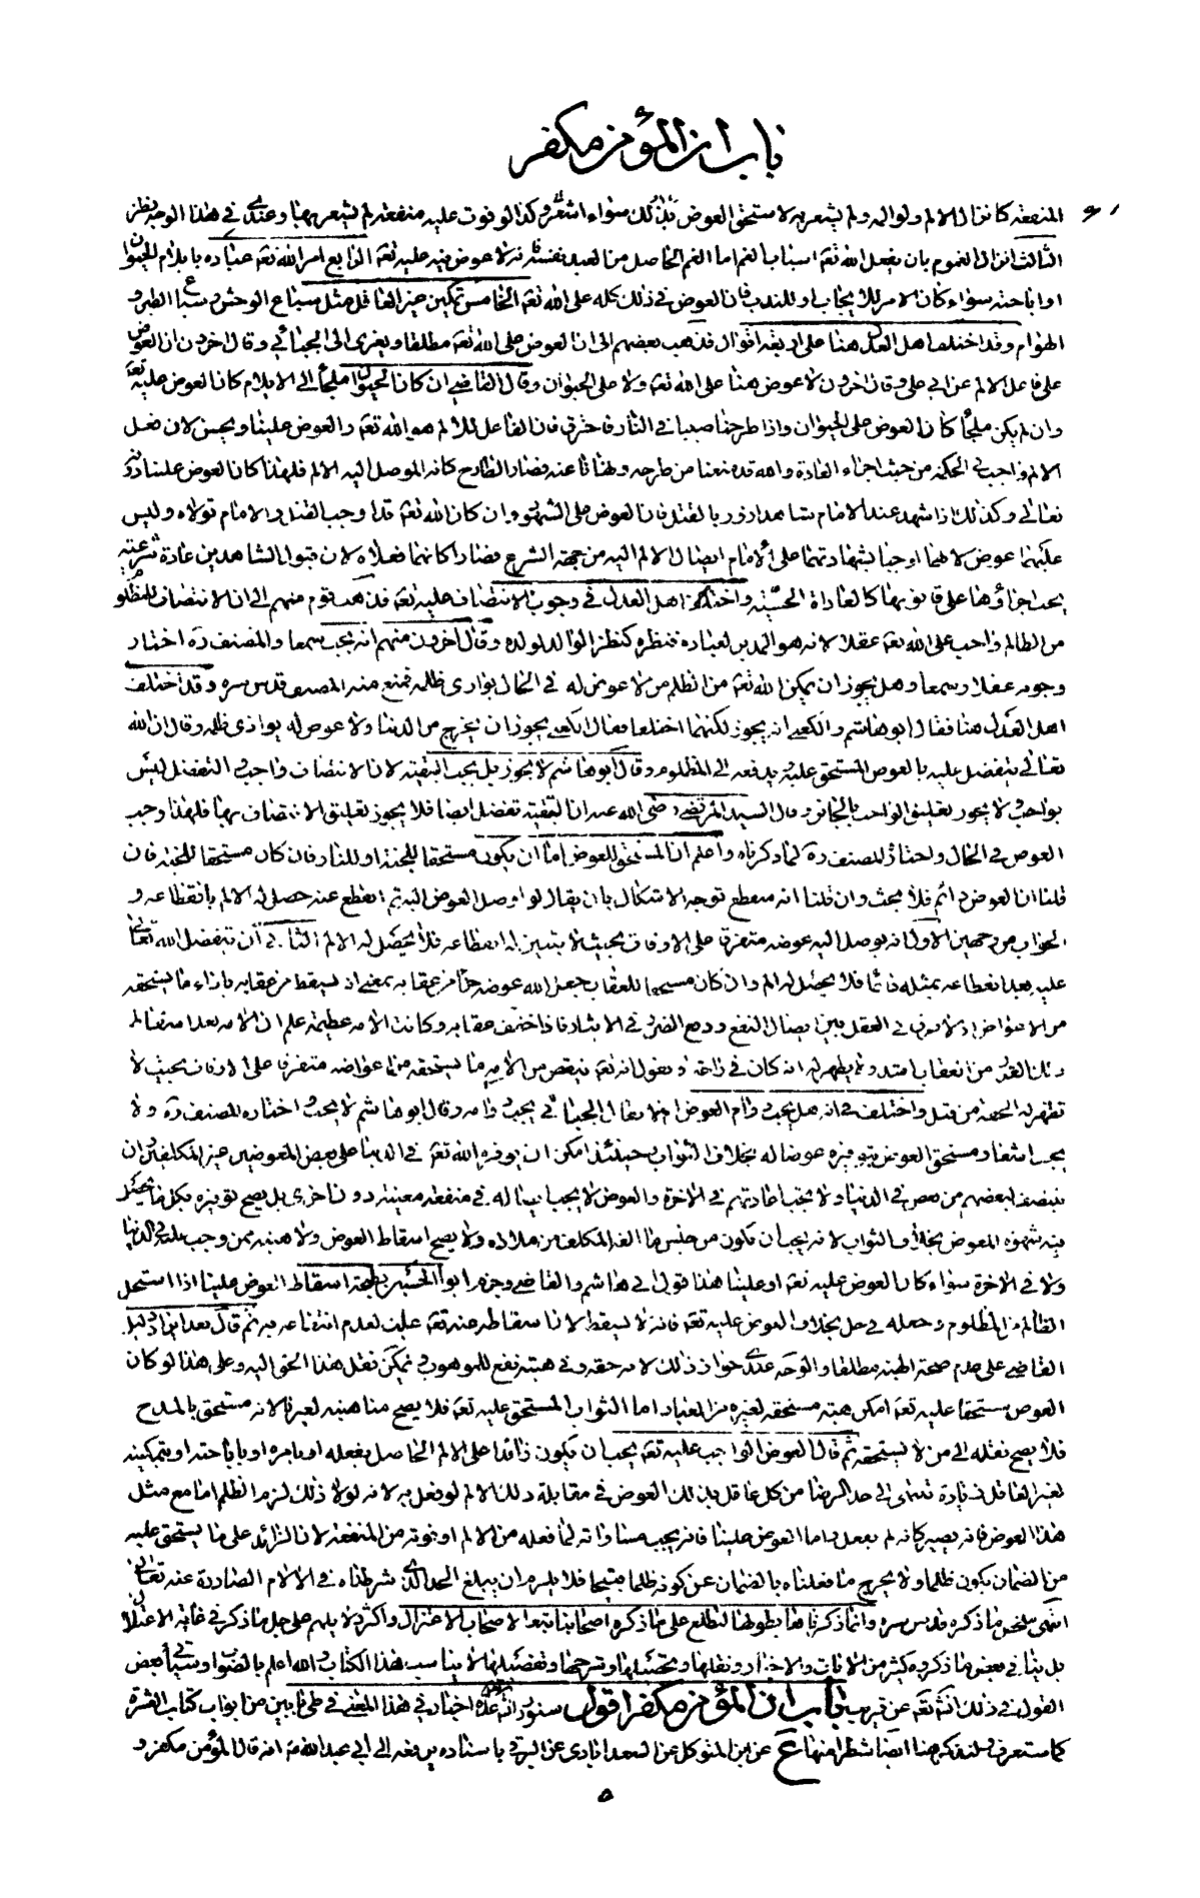 باب ان المؤمن مكفر
المنفعة كانزال الالم ولو الم ولم يشعر به لاستحق العوض بذلك سواء اشعر وكذا لو فوت عليه منفعة لم يشعر بها وعندي في هذا الوجه نظر
الثالث انزال الغموم بان يفعل الله تعه اسباب الغم اما الغم الحاصل من العبد نفسه فانه لا عوض فيه عليه تعه الرابع امر الله تعه عباده بايلام الحيوان
او اباحته سواء كان الامر للايجاب او للندب فان العوض في ذلك كله على الله تعه الخامس تمكين غير العاقل مثل سباع الوحش وسباع الطير و
الهوام وقد اختلف اهل العدل هنا على اربعة اقوال فذهب بعضهم الى ان العوض على الله تعه مطلقا ويعزى الى الجبائي وقال اخرون ان العوض
على فاعل الالم عن ابي علي وقال اخرون لا عوض هنا على الله تعه ولا على الحيوان وقال القاضي ان كان الحيوان ملجأ الى الايلام كان العوض عليه تعه
وان لم يكن ملجأ كان العوض على الحيوان واذا طرحنا صبيا في النار فاحترق فان الفاعل للالم هو الله تعه والعوض علينا ويحسن لان فعل
الالم واجب في الحكمة من حيث اجراء العادة والله قد منعنا من طرحه ونهانا عنه فصار الطارح كانه الموصل اليه الالم فلهذا كان العوض علينا دونه
تعالى وكذلك اذا شهد عند الامام شاهدا زور بالقتل فان العوض على الشهود وان كان الله تعه قد اوجب القتل والامام تولاه وليس
عليهما عوض لانهما اوجبا بشهادتهما على الامام ايصال الالم اليه من جهة الشرع فصارا كانهما فعلاه لان قبول الشاهدين عادة شرعية
يجب اجراؤها على قانونها كالعادات الحسية واختلف اهل العدل في وجوب الانتصاف عليه تعه فذهب قوم منهم الى ان الانتصاف للمظلوم
من الظالم واجب على الله تعه عقلا لانه هو المدبر لعباده فنظره كنظر الوالد لولده وقال اخرون منهم انه يجب سمعا والمصنف ره اختار
وجوبه عقلا وسمعا وهل يجوز ان يمكن الله تعه من الظلم من لا عوض له في الحال يوازي ظلمه فمنع منه المصنف قدس سره وقد اختلف
اهل العدل هنا فقال ابو هاشم والكعبي انه يجوز لكنهما اختلفا فقال الكعبي يجوز ان يخرج من الدنيا ولا عوض له يوازي ظلمه وقال ان الله
تعالى يتفضل عليه بالعوض المستحق عليه ويدفعه الى المظلوم وقال ابو هاشم لا يجوز بل يجب التبقية لان الانتصاف واجب والتفضل ليس
بواجب ولا يجوز تعليق الواجب بالجائز وقال السيد المرتضى رضي الله عنه ان التبقية تفضل ايضا فلا يجوز تعليق الانتصاف بها فلهذا وجب
العوض في الحال واختار المصنف ره لما ذكرناه واعلم ان المستحق للعوض اما ان يكون مستحقا للجنة او للنار فان كان مستحقا للجنة فان
قلنا ان العوض دائم فلا بحث وان قلنا انه منقطع توجه الاشكال بان يقال لو اوصل العوض اليه ثم انقطع عنه حصل له الالم بانقطاعه و
الجواب من وجهين الاول انه يوصل اليه عوضه متفرقا على الاوقات بحيث لا يتبين له انقطاعه فلا يحصل له الالم الثاني ان يتفضل الله تعالى
عليه بعد انقطاعه بمثله دائما فلا يحصل له الم وان كان مستحقا للعقاب جعل الله عوضه جزأ من عقابه بمعنى انه يسقط من عقابه بازاء ما يستحقه
من الاعواض اذ لا فرق في العقل بين ايصال النفع ودفع الضرر في الايثار فاذا خفف عقابه وكانت الامه عظيمة علم ان الامه بعد اسقاط
ذلك القدر من العقاب اشد ولا يظهر له انه كان في راحة او نقول انه تعه ينقص من الامه ما يستحقه من اعواضه متفرقا على الاوقات بحيث لا
تظهر له الخفة من قبل واختلف في انه هل يجب دوام العوض ام لا فقال الجبائي يجب دوامه وقال ابو هاشم لا يجب واختاره المصنف ره ولا
يجب اشعار مستحق العوض بتوفيره عوضا له بخلاف الثواب وحينئذ امكن ان يوفره الله تعه في الدنيا على بعض المعوضين غير المكلفين وان
ينتصف لبعضهم من بعض في الدنيا ولا يجب اعادتهم في الاخرة والعوض لا يجب ايصاله في منفعة معينة دون اخرى بل يصح توفيره بكل ما يحصل
فيه شهوة المعوض بخلاف الثواب لانه يجب ان يكون من جنس ما الفه المكلف من ملاذه ولا يصح اسقاط العوض ولا هبته ممن وجب عليه في الدنيا
ولا في الاخرة سواء كان العوض عليه تعه او علينا هذا قول ابي هاشم والقاضي وجزم ابو الحسين بصحة اسقاط العوض علينا اذا استحل
الظالم من المظلوم وجعله في حل بخلاف العوض عليه تعه فانه لا يسقط لان اسقاطه عنه تعه عبث لعدم انتفاعه به ثم قال بعد ايراد دليل
القاضي على عدم صحة الهبة مطلقا والوجه عندي جواز ذلك لانه حقه وفي هبته نفع للموهوب ويمكن نقل هذا الحق اليه وعلى هذا لو كان
العوض مستحقا عليه تعه امكن هبة مستحقه لغيره من العباد اما الثواب المستحق عليه تعه فلا يصح منا هبته لغيرنا لانه مستحق بالمدح
فلا يصح نقله الى من لا يستحقه ثم قال العوض الواجب عليه تعه يجب ان يكون زائدا على الالم الحاصل بفعله او بامره او باباحته او بتمكينه
لغير العاقل زيادة تنتهي الى حد الرضا من كل عاقل بذلك العوض في مقابلة ذلك الالم لو فعل به لانه لولا ذلك لزم الظلم اما مع مثل
هذا العوض فانه يصير كانه لم يفعل به اما العوض علينا فانه يجب مساواته لما فعله من الالم او فوته من المنفعة لان الزائد على ما يستحق عليه
من الضمان يكون ظلما ولا يخرج ما فعلناه بالضمان عن كونه ظلما قبيحا فلا يلزم ان يبلغ الحد الذي شرطناه في الالام الصادرة عنه تعالى
انتهى ملخص ما ذكره قدس سره وانما ذكرناها بطولها لتطلع على ما ذكره اصحابنا تبعا لاصحاب الاعتزال واكثر دلايلهم على جل ما ذكر في غاية الاعتلال
بل ينافي بعض ما ذكروه كثير من الايات والاخبار ونقلها وتحصيلها وشرحها وتفصيلها لا يناسب هذا الكتاب والله اعلم بالصواب وسيأتي بعض
القول في ذلك انشاء تعه عن قريب باب ان المؤمن مكفر اقول سنورد انشاء عدة اخبار في هذا المعنى في طي باب من ابواب كتاب العشرة
كما ستعرف ولنذكر هنا ايضا شطرا منها ع عن ابن المتوكل عن السعد ابادي عن البرقي باسناده يرفعه الى ابي عبد الله ع انه قال المؤمن مكفر و